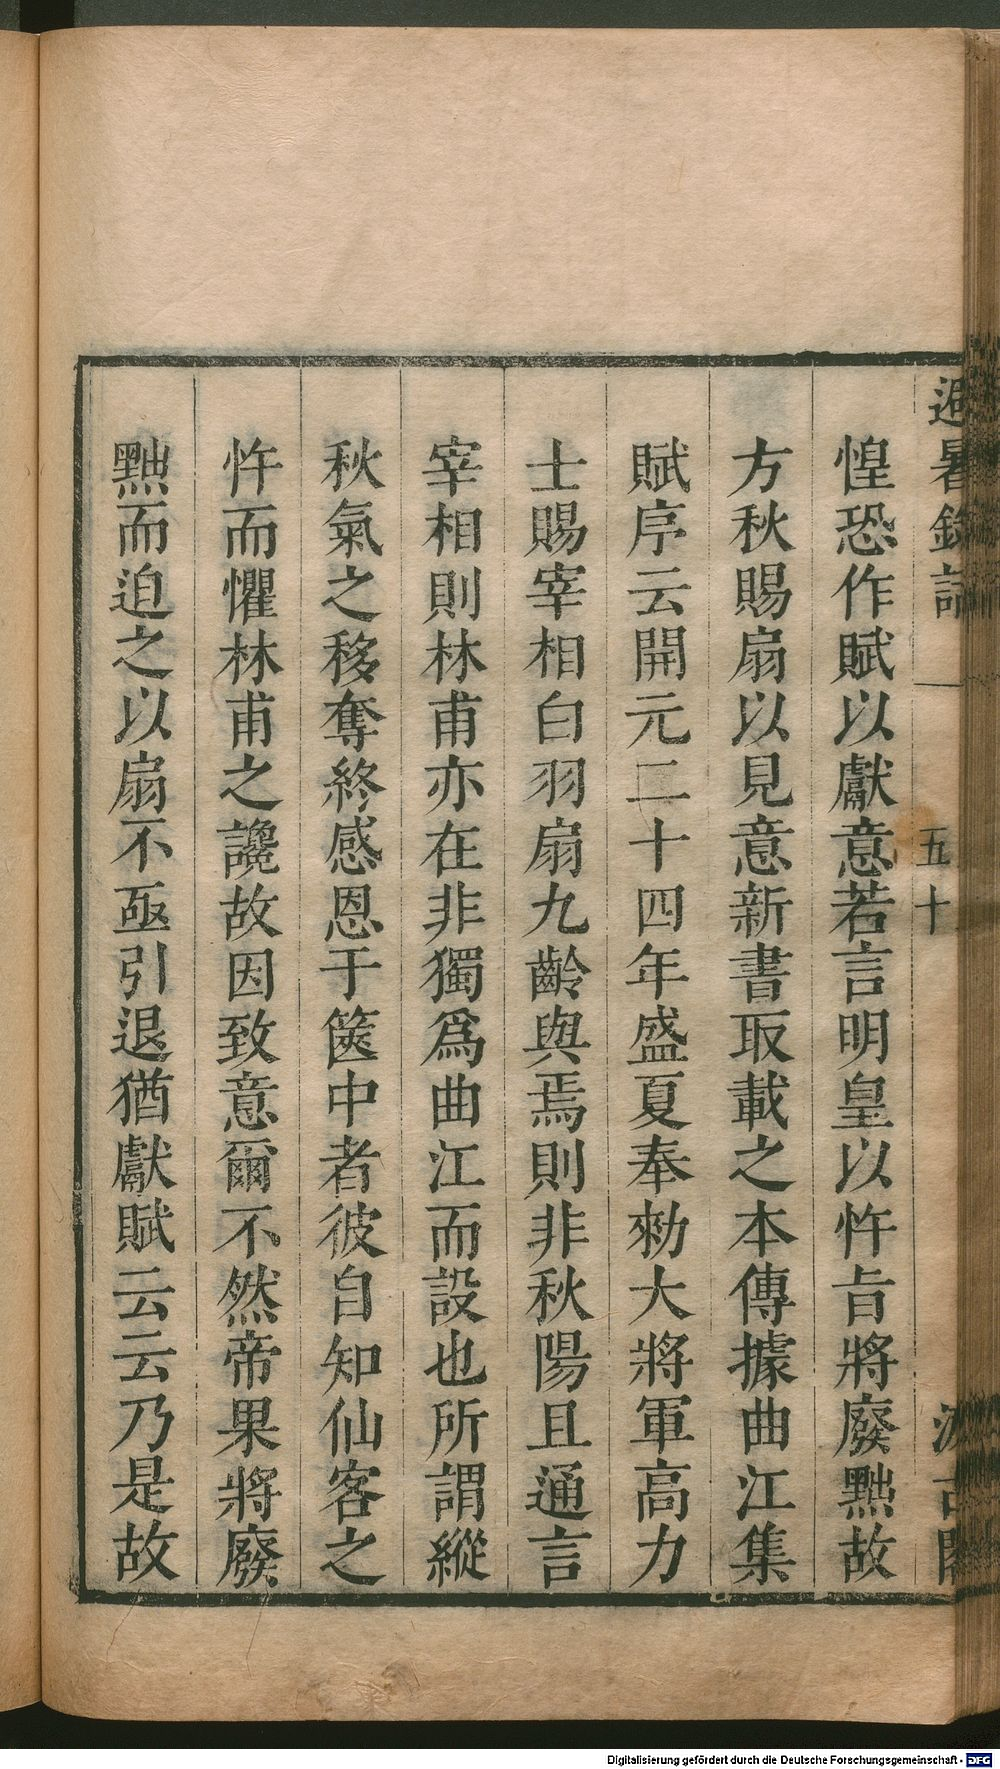 避暑錄話
五十
汲古閣
惶恐作賦以獻意若言明皇以忤旨將廢黜故
方秋賜扇以見意新書取載之本傳據曲江集
賦序云開元二十四年盛夏奉勑大將軍高力
士賜宰相白羽扇九齡與焉則非秋陽且通言
宰相則林甫亦在非獨爲曲江而設也所謂縱
秋氣之移奪終感恩于篋中者彼自知仙客之
忤而懼林甫之讒故因致意爾不然帝果將廢
黜而迫之以扇不亟引退猶獻賦云云乃是故
Digitalisierung gefördert durch die Deutsche Forschungsgemeinschaft - DFG